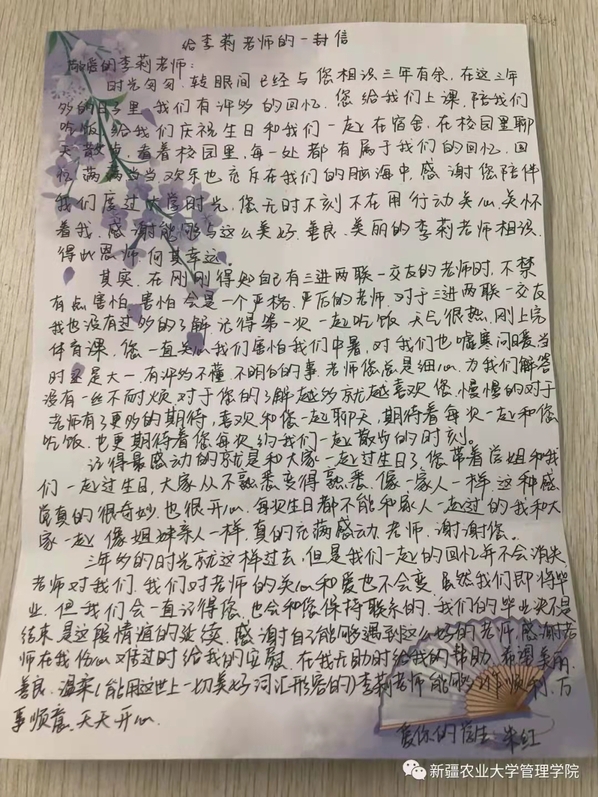 给李莉老师的一封信
敬爱的李莉老师:
时光匆匆,转眼间已经与您相识三年有余,在这三年
多的日子里,我们有许多的回忆。您给我们上课,陪我们
吃饭,给我们庆祝生日和我们一起在宿舍,在校园里聊
天,散步,看着校园里,每一处都有属于我们的回忆,回
忆满满当当欢乐也充斥在我们的脑海中,感谢您陪伴
我们度过大学时光,您无时不刻不在用行动关心,关怀
着我,感谢能够与这么美好,善良,美丽的李莉老师相识,
得此恩师,何其幸运。
其实,在刚刚得知自己有三进两联一交友的老师时,不禁
有点害怕,害怕会是一个严格,严厉的老师,对于三进两联一交友
我也没有过多的了解,记得第一次一起吃饭,天气很热,刚上完
体育课,您一直关心我们害怕我们中暑,对我们也嘘寒问暖,当
时还是大一,有许多不懂,不明白的事,老师您总是细心,为我们解答
没有一丝不耐烦,对于您的了解越多就越喜欢您,慢慢的对于
老师有了更多的期待,喜欢和您一起聊天,期待着每次一起和您
吃饭,也更期待着您每次约我们一起散步的时刻。
记得最感动的就是和大家一起过生日了,您带着学姐和我
们一起过生日,大家从不熟悉变得熟悉,像一家人一样,这种感
觉真的很奇妙,也很开心。每次生日都不能和家人一起过的我和大
家一起,像姐妹亲人一样,真的充满感动,老师,谢谢您。
三年多的时光就这样过去,但是我们一起的回忆并不会消失,
老师对我们,我们对老师的关心和爱也不会变,虽然我们即将毕
业,但我们会一直记得您,也会和您保持联系的,我们的毕业决不是
结束,是这段情谊的延续,感谢自己能够遇到这么好的老师,感谢老
师在我伤心难过时给我的安慰,在我无助时给我的帮助,希望美丽,
善良,温柔(能用这世上一切美好词汇形容的)李莉老师能够工作顺利,万
事顺意,天天开心。
爱你的学生:朱红
新疆农业大学管理学院